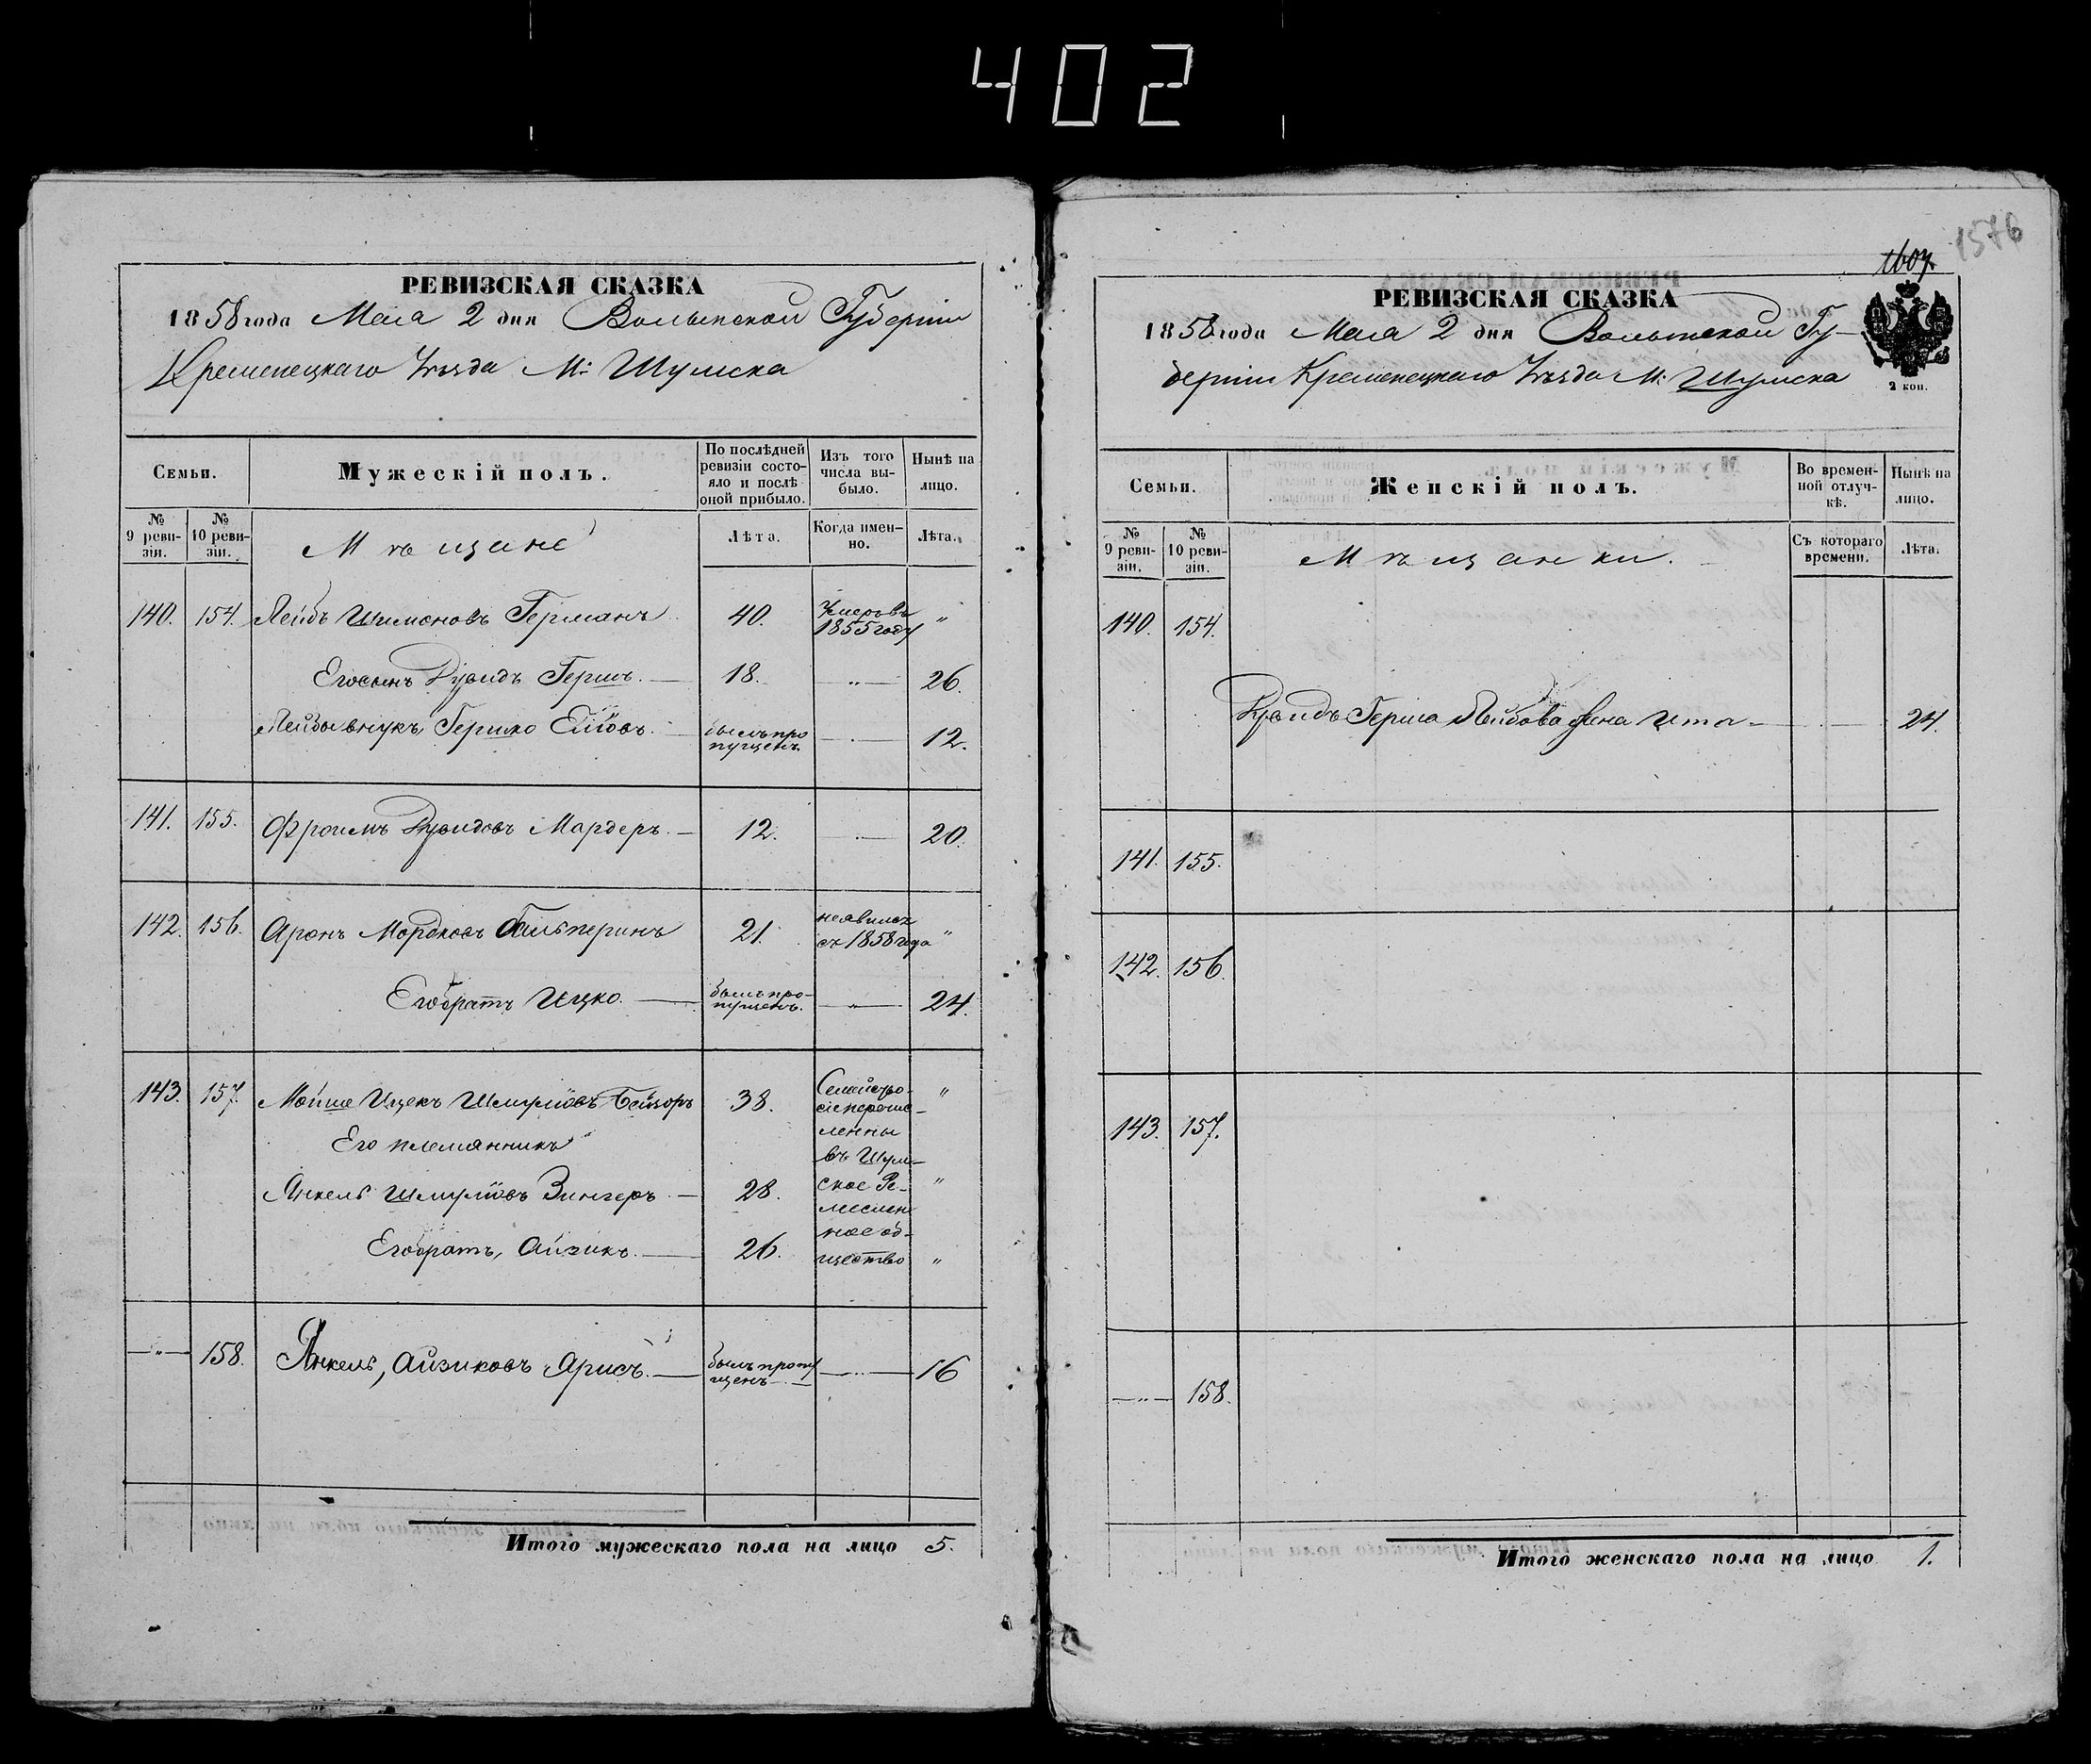 402
РЕВИЗСКАЯ СКАЗКА
1858 года Мая 2 дня Волынской Губерніи
Кременецкаго Уѣзда М: Шумска
Семьи.
Мужескій полъ.
По послѣдней ревизіи состояло и послѣ оной прибыло.
Изъ того числа выбыло.
Нынѣ на лицо.
№ 9 ревизіи.
№ 10 ревизіи.
Мѣщане
Лѣта.
Когда именно.
Лѣта.
140. 154. Лейбъ Шимоновъ Германъ 40. Умеръ въ 1855 году "
Его сынъ Дувидъ Гершъ. — 18. —"— 26.
Лейбы внукъ, Гершко Еліовъ. — былъ пропущенъ — 12.
141. 155. Фроимъ Дувидовъ Мардеръ. — 12. — 20.
142. 156. Аронъ Мордковъ Гальперинъ 21. неявился съ 1858 года "
Его братъ Ицко. — былъ пропущенъ. —"— 24.
143. 157. Мойше Ицекъ Шмуліовъ 38. Семейство сіе перечисленны въ Шумское Ремесленное общество "
Его племянникъ
Янкель Шмуліовъ Зингеръ. — 28. "
Его братъ, Айзикъ. — 26. "
—"— 158. Янкель, Айзиковъ Арисъ. — былъ пропущенъ — 16
Итого мужескаго пола на лицо 5.
1576
1607
РЕВИЗСКАЯ СКАЗКА
1858 года Мая 2 дня Волынской Гу-
берніи Кременецкаго Уѣзда М: Шумска
2 коп.
Семьи.
Женскій полъ.
Во временной отлучкѣ.
Нынѣ на лицо.
№ 9 ревизіи.
№ 10 ревизіи.
Мѣщанки.
Съ котораго времени.
Лѣта.
140. 154.
Дувидъ Герша Лейбова жена Ита — 24.
141. 155.
142. 156.
143. 157.
—"— 158.
Итого женскаго пола на лицо 1.